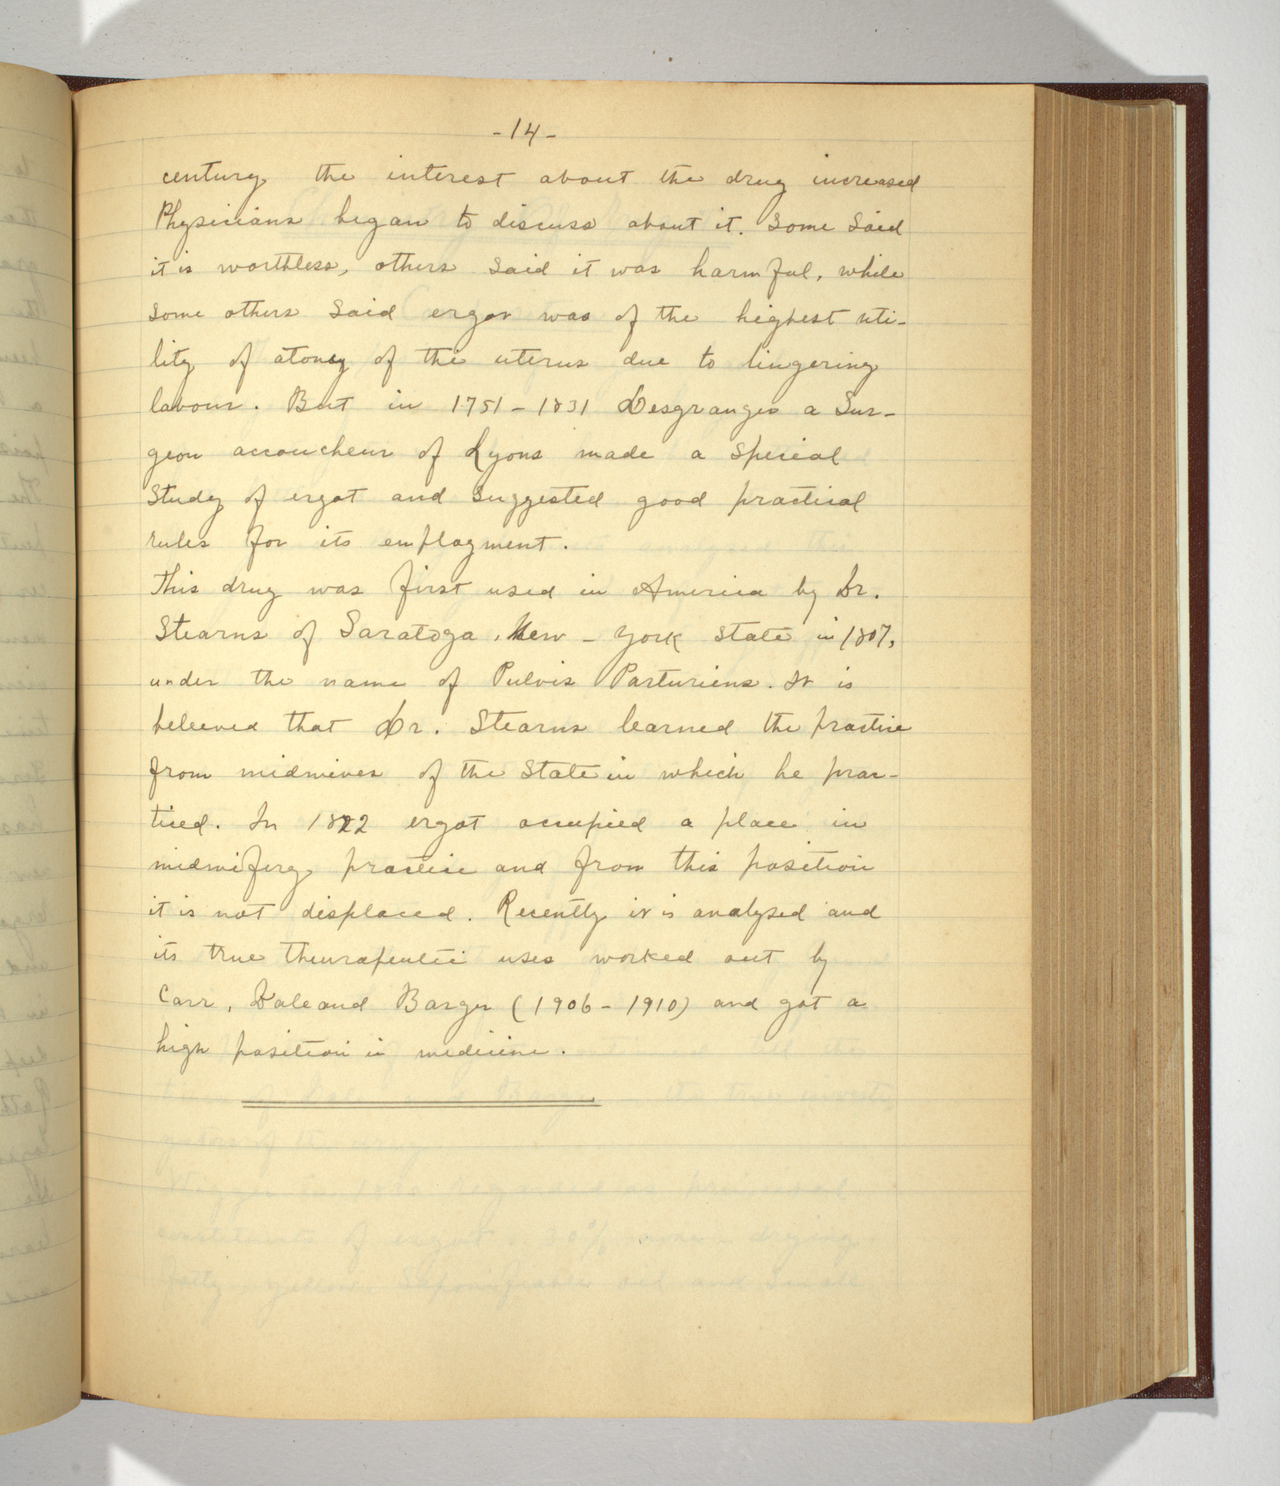 -14-
century the interest about the drug increased
Physicians began to discuss about it. Some said
it is worthless, others said it was harmful, while
some others said ergot was of the highest uti-
lity of atony of the uterus due to lingering
labour. But in 1751-1831 Desgranges a Sur-
geon accoucheur of Lyons made a special
study of ergot and suggested good practical
rules for its employment.
This drug was first used in America by Dr.
Stearns of Saratoga, New-York State in 1807,
under the name of Pulvis Parturiens. It is
beleeved that Dr. Stearns learned the practise
from midwives of the State in which he prac-
ticed. In 1822 ergot occupied a place in
midwifery practise and from this position
it is not displaced. Recently it is analyzed and
its true theurapeutic uses worked out by
Carr, Dale and Barger (1906-1910) and got a
high position in medicine.